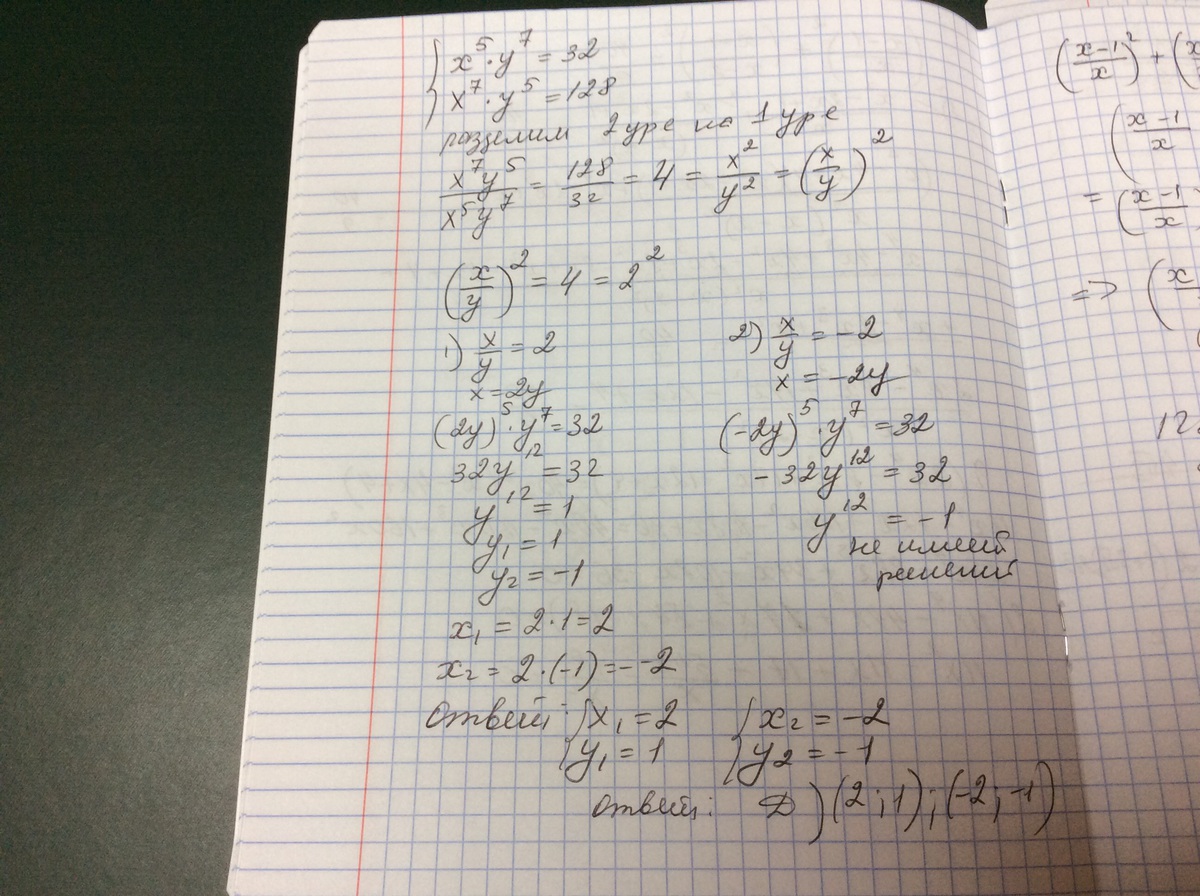 { x⁵·y⁷ = 32
x⁷·y⁵ = 128
разделим 2 уре на 1 уре
x⁷y⁵/x⁵y⁷ = 128/32 = 4 = x²/y² = (x/y)²
(x/y)² = 4 = 2²
1) x/y = 2
x = 2y
(2y)⁵·y⁷ = 32
32y¹² = 32
y¹² = 1
y₁ = 1
y₂ = -1
2) x/y = -2
x = -2y
(-2y)⁵·y⁷ = 32
-32y¹² = 32
y¹² = -1
не имеет
решений
x₁ = 2·1 = 2
x₂ = 2·(-1) = -2
Ответ: { x₁ = 2 { x₂ = -2
y₁ = 1 y₂ = -1
Ответ: D) (2;1);(-2;-1)
((x-1)/x)² + (
((x-1)/x
= ((x-1)/x
=> (x